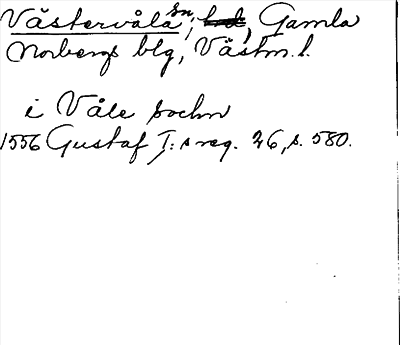 Västervåla sn, Gamla
Norbergs blg, Västm. l.
i Våle sochn
1556 Gustaf I:s reg. 26, s. 580.